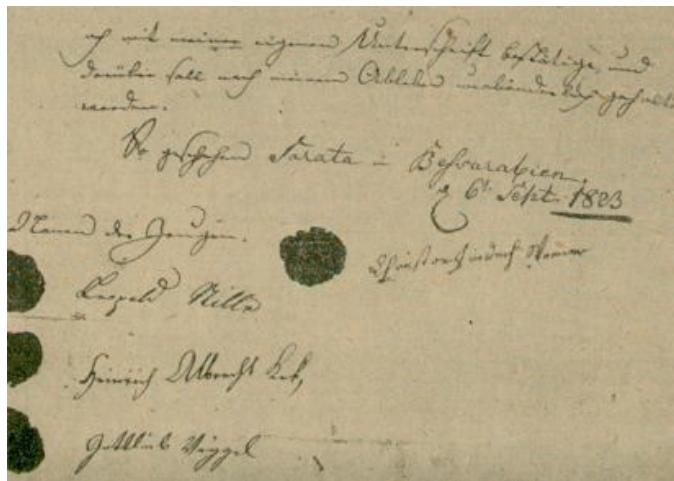 ich mit meiner eigenen Unterschrift bestätige, und
darüber soll nach meinem Ableben unabänderlich gehalten
werden.
So geschehen Sarata in Beßarabien,
d 6t Sept. 1823
Namen der Zeugen.
Christ Friedrich Werner
Leopold
Heinrich Albrecht
Gottlieb Veygel